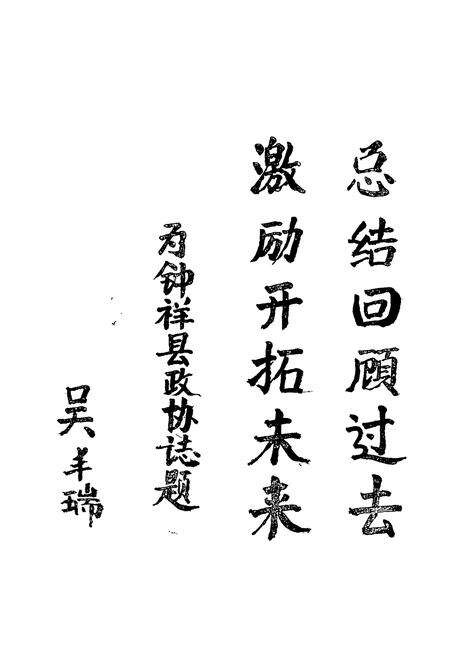 总结回顾过去
激励开拓未来
为钟祥县政协誌题
吴丰瑞